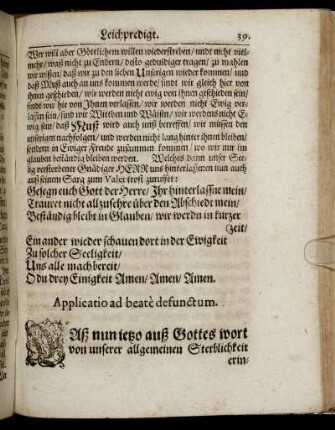 Leichpredigt. 39.
Wer will aber Göttlichem willen wiederstreben / undt nicht viel-
mehr / waß nicht zu Endern / desto geduldiger tragen / zu mahlen
wir wissen / daß wir zu den lieben Unserigen wieder kommen / und
daß Muß auch an uns kommen werde / sindt wir gleich hier von
ihnen geschieden / wir werden nicht ewig von ihnen geschieden sein /
sindt wir hie von Ihnen verlassen / wir werden nicht Ewig ver-
lassen sein / sind wir Witben und Wäisen / wir werdens nicht E-
wig sein / daß Muß wird auch unß betreffen / wir müssen den
unserigen nachfolgen / und werden nicht lang hinter ihnen bleiben /
sondern in Ewiger Freude zusammen kommen / wo wir nur im
glauben beständig bleiben werden. Welches dann unser See-
lig verstorbener Gnädiger HERR uns hinterlassenen nun auch
auß seinem Sarg zum Valet trost zurufft:
Gesegn euch Gott der Herre / Ihr hinterlassne mein /
Trauret nicht allzusehre über den Abschiedt mein /
Beständig bleibt in Glauben / wir werdn in kurzer
Zeit /
Ein ander wieder schauen dort in der Ewigkeit
Zu solcher Seeligkeit /
Uns alle mach bereit /
O du drey Einigkeit Amen / Amen / Amen.
Applicatio ad beatè defunctum.
Daß nun ietzo auß Gottes wort
von unserer allgemeinen Sterblichkeit
erin-